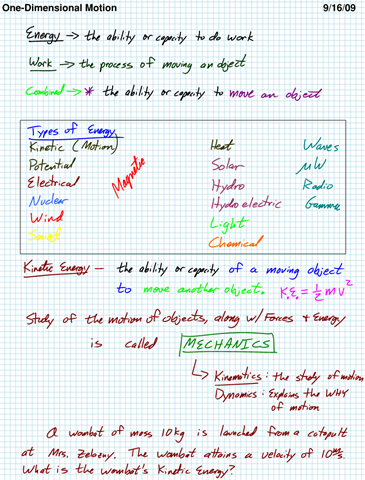 One-Dimensional Motion 9/16/09
Energy → the ability or capacity to do work
Work → the process of moving an object
Combined → * the ability or capacity to move an object
Types of Energy
Kinetic (Motion) Heat Waves
Potential Solar μW
Electrical Magnetic Hydro Radio
Nuclear Hydroelectric Gamma
Wind Light
Sound Chemical
Kinetic Energy – the ability or capacity of a moving object
to move another object. K.E. = 1/2 mv²
Study of the motion of objects, along w/ Forces + Energy
is called MECHANICS
↳ Kinematics: the study of motion
Dynamics: Explains the WHY
of motion
A wombat of mass 10kg is launched from a catapult
at Mrs. Zebeny. The wombat attains a velocity of 10 m/s.
What is the wombat's Kinetic Energy?